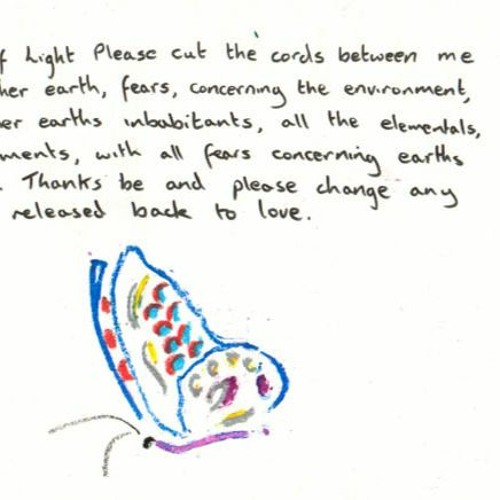 f Light Please cut the cords between me
her earth, fears, concerning the environment,
er earths inhabitants, all the elementals,
ments, with all fears concerning earths
. Thanks be and please change any
released back to love.